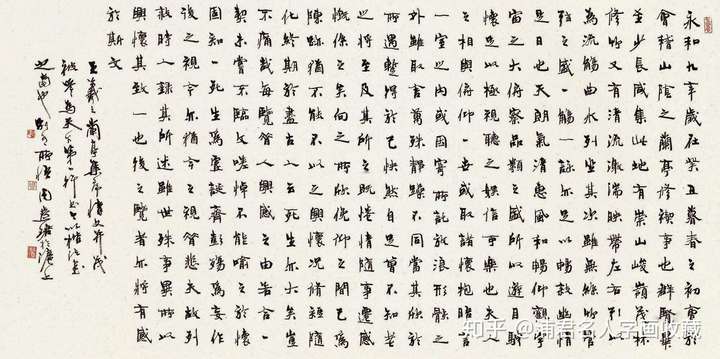 永和九年歲在癸丑暮春之初會於
會稽山陰之蘭亭修禊事也群賢畢
至少長咸集此地有崇山峻嶺茂林
修竹又有清流激湍映帶左右引以
為流觴曲水列坐其次雖無絲竹管
弦之盛一觴一詠亦足以暢敘幽情
是日也天朗氣清惠風和暢仰觀宇
宙之大俯察品類之盛所以遊目騁
懷足以極視聽之娛信可樂也夫人
之相與俯仰一世或取諸懷抱晤言
一室之內或因寄所託放浪形骸之
外雖取舍萬殊靜躁不同當其欣於
所遇暫得於己快然自足曾不知老
之將至及其所之既倦情隨事遷感
慨係之矣向之所欣俯仰之間已為
陳跡猶不能不以之興懷況修短隨
化終期於盡古人云死生亦大矣豈
不痛哉每覽昔人興感之由若合一
契未嘗不臨文嗟悼不能喻之於懷
固知一死生為虛誕齊彭殤為妄作
後之視今亦猶今之視昔悲夫故列
敘時人錄其所述雖世殊事異所以
興懷其致一也後之覽者亦將有感
於斯文
王羲之蘭亭集序情文并茂
被譽為天下第一行書
知乎 @浦君名人字画收藏